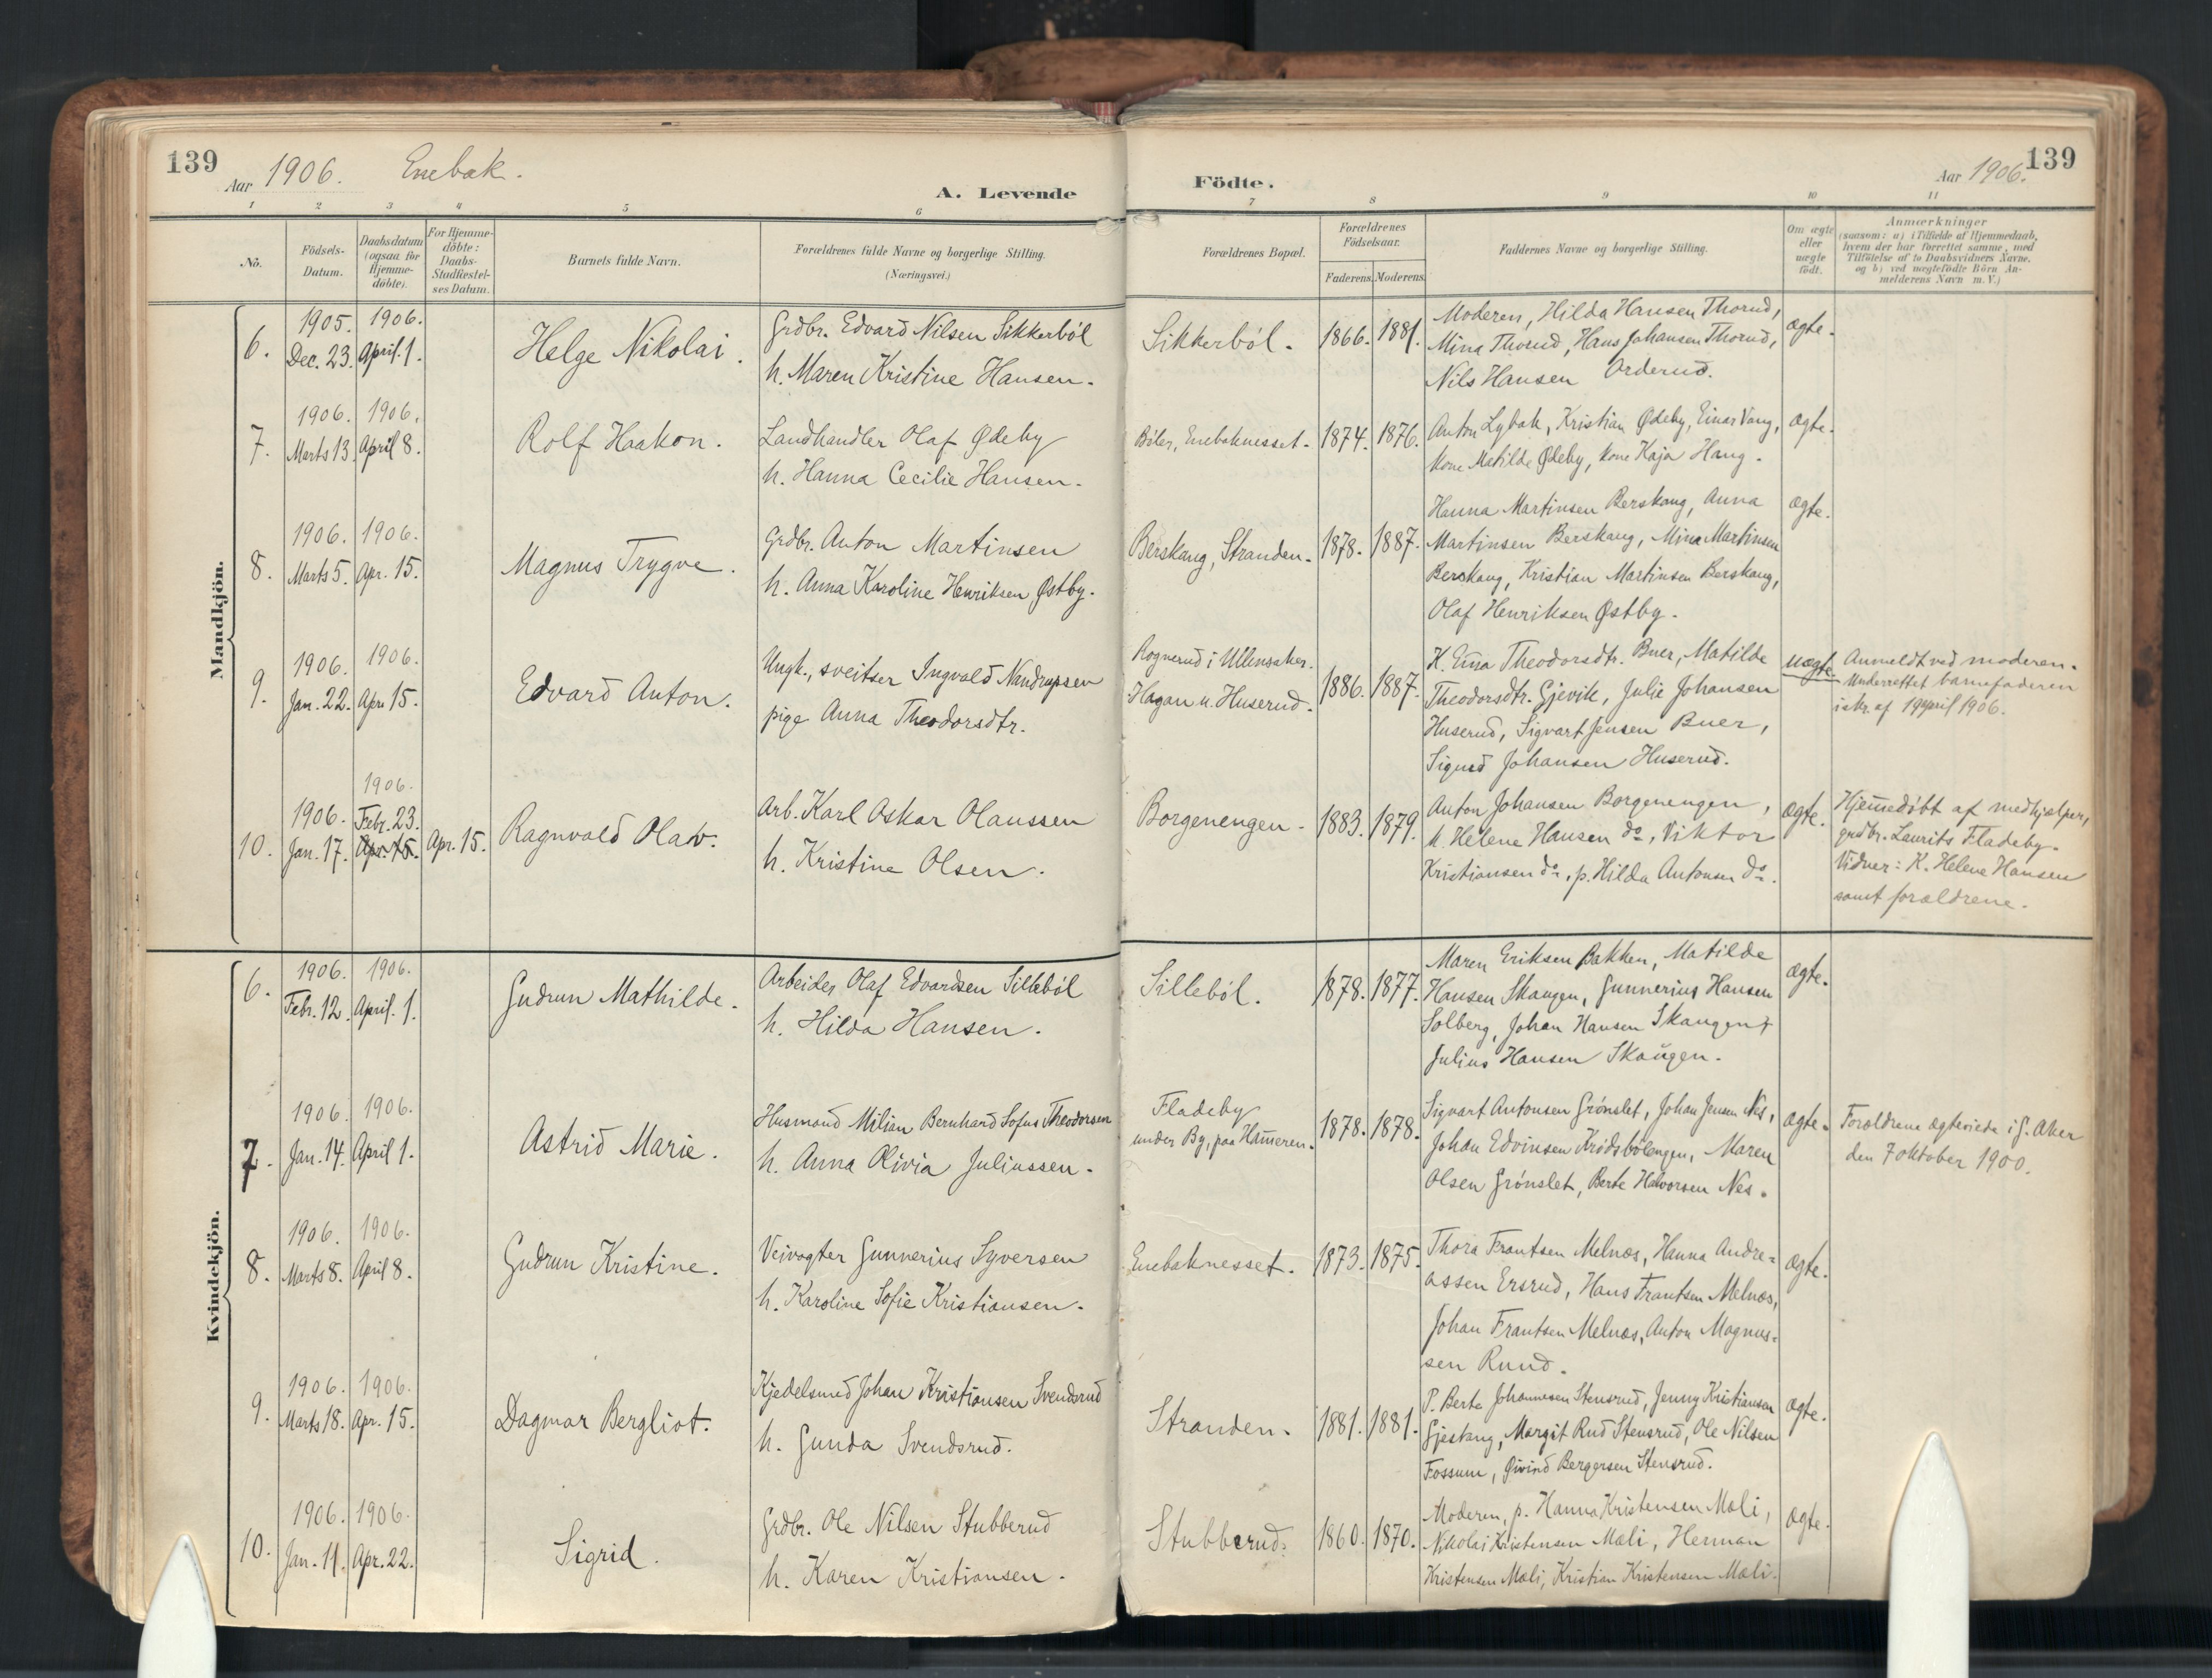 139
Aar 1906. Enebak.
A. Levende
Födte.
Aar 1906.
139
1 2 3 4 5 6 7 8 9 10 11
No.
Födsels-
Datum.
Daabsdatum
(ogsaa for
Hjemme-
döbte).
For Hjemme-
döbte:
Daabs-
Stadfæstel-
ses Datum.
Barnets fulde Navn.
Forældrenes fulde Navne og borgerlige Stilling.
(Næringsvei.)
Forældrenes Bopæl.
Forældrenes
Födselsaar.
Faderens. Moderens.
Faddernes Navne og borgerlige Stilling.
Om ægte
eller
uægte
födt.
Anmærkninger
(saasom: a) i Tilfælde af Hjemmedaab,
hvem der har forrettet samme, med
Tilföielse af to Daabsvidners Navne.
og b) ved uægtefödte Börn An-
melderens Navn m. V.)
Mandkjön.
6.
1905.
Dec. 23.
1906.
April. 1.
Helge Nikolai.
Grdbr. Edvard Nilsen Sikkerböl
h. Maren Kristine Hansen.
Sikkerböl.
1866. 1881.
Moderen, Hilda Hansen Thorud,
Mina Thorud, Hans Johansen Thorud,
Nils Hansen Orderud.
ægte.
7.
1906.
Marts 13.
1906.
April 8.
Rolf Haakon.
Landhandler Olaf Ødeby
h. Hanna Cecilie Hansen.
Böler, Enebaknesset.
1874. 1876.
Anton Lybak, Kristian Ødeby, Einar Vang,
kone Matilde Ødeby, kone Kaja Haug.
ægte.
8.
1906.
Marts 5.
1906.
Apr. 15.
Magnus Trygve.
Grdbr. Anton Martinsen
h. Anna Karoline Henriksen Østby.
Berskaug, Stranden.
1878. 1887.
Hanna Martinsen Berskaug, Anna
Martinsen Berskaug, Mina Martinsen
Berskaug, Kristian Martinsen Berskaug,
Olaf Henriksen Østby.
ægte.
9.
1906.
Jan. 22.
1906.
Apr. 15.
Edvard Anton.
Ungk., sveitser Ingvald Nandrupsen
pige Anna Theodorsdtr.
Rognerud i Ullensaker.
Hagan u. Huserud.
1886. 1887.
K. Eina Theodorsdtr. Buer, Matilde
Theodorsdtr. Gjevik, Julie Johansen
Huserud, Sigvart Jensen Buer,
Sigurd Johansen Huserud.
uægte
Anmeldt ved moderen.
Underrettet barnefaderen
i skr. af 19 april 1906.
10.
1906.
Jan. 17.
1906.
Febr. 23.
Apr. 15.
Apr. 15.
Ragnvald Olav.
Arb. Karl Oskar Olaussen
h. Kristine Olsen.
Borgenengen.
1883. 1879.
Anton Johansen Borgenengen,
k. Helene Hansen do., Viktor
Kristiansen do., p. Hilda Antonsen do.
ægte.
Hjemedöbt af medhjælper,
grdbr. Laurits Fladeby.
Vidner: K. Helene Hansen
samt forældrene.
Kvindekjön.
6.
1906.
Febr. 12.
1906.
April. 1.
Gudrun Mathilde.
Arbeider Olaf Edvardsen Silleböl
h. Hilda Hansen.
Silleböl.
1878. 1877.
Maren Eriksen Bakken, Matilde
Hansen Skaugen, Gunnerius Hansen
Solberg, Johan Hansen Skaugen,
Julius Hansen Skaugen.
ægte.
7.
1906.
Jan. 14.
1906.
April 1.
Astrid Marie.
Husmand Milian Bernhard Sofus Theodorsen
h. Anna Olivia Juliussen.
Fladeby
under By, paa Hameren.
1878. 1878.
Sigvart Antonsen Grönslet, Johan Jensen Nes,
Johan Edvinsen Krödsbölengen, Maren
Olsen Grönslet, Berte Halvorsen Nes.
ægte.
Forældrene ægteviede i G. Aker
den 7 oktober 1900.
8.
1906.
Marts 8.
1906.
April 8.
Gudrun Kristine.
Veivogter Gunnerius Syversen
h. Karoline Sofie Kristiansen.
Enebaknesset.
1873. 1875.
Thora Frantsen Melnæs, Hanna Andre-
assen Ersrud, Hans Frantsen Melnæs,
Johan Frantsen Melnæs, Anton Magnus-
sen Rund.
ægte.
9.
1906.
Marts 18.
1906.
Apr. 15.
Dagmar Bergliot.
Kjedelsmed Johan Kristiansen Svendsrud
h. Gunda Svendsrud.
Stranden.
1881. 1881.
P. Berte Johannesen Stensrud, Jenny Kristiansen
Gjestang, Margit Rud Stensrud, Ole Nilsen
Fossum, Øivind Bergersen Stensrud.
ægte.
10.
1906.
Jan. 11.
1906.
Apr. 22.
Sigrid.
Grdbr. Ole Nilsen Stubberud
h. Karen Kristiansen.
Stubberud.
1860. 1870.
Moderen, p. Hanna Kristensen Mæli,
Nikolai Kristensen Mæli, Herman
Kristensen Mæli, Kristian Kristensen Mæli.
ægte.